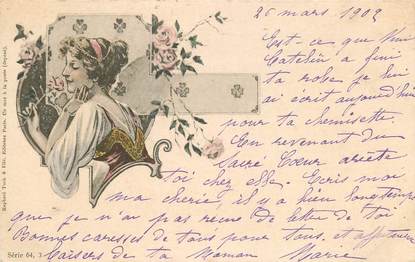 26 mars 1902
Est-ce que Mme
Catelin a fini
ta robe je lui
ai écrit aujourd'hui
pour ta chemisette.
En revenant du
Sacré Cœur arrete
toi chez elle. Ecris moi
ma cherie, il y a bien longtemps
que je n'ai pas recue de lettre de toi
Bonnes caresses de tous pour tous. et
baisers de ta Maman Marie
Raphael Tuck & Fils, Editeurs Paris. Un mot à la poste (déposé).
Série 64, 3